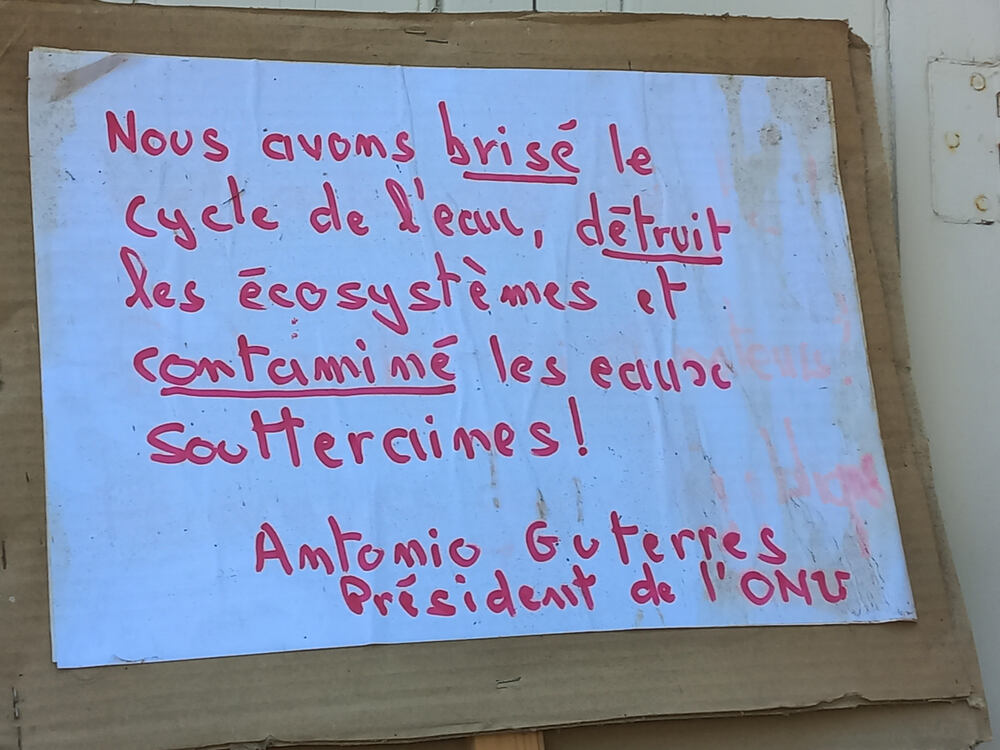 Nous avons brisé le
cycle de l'eau, détruit
les écosystèmes et
contaminé les eaux
soutterraines!
Antonio Guterres
Président de l'ONU